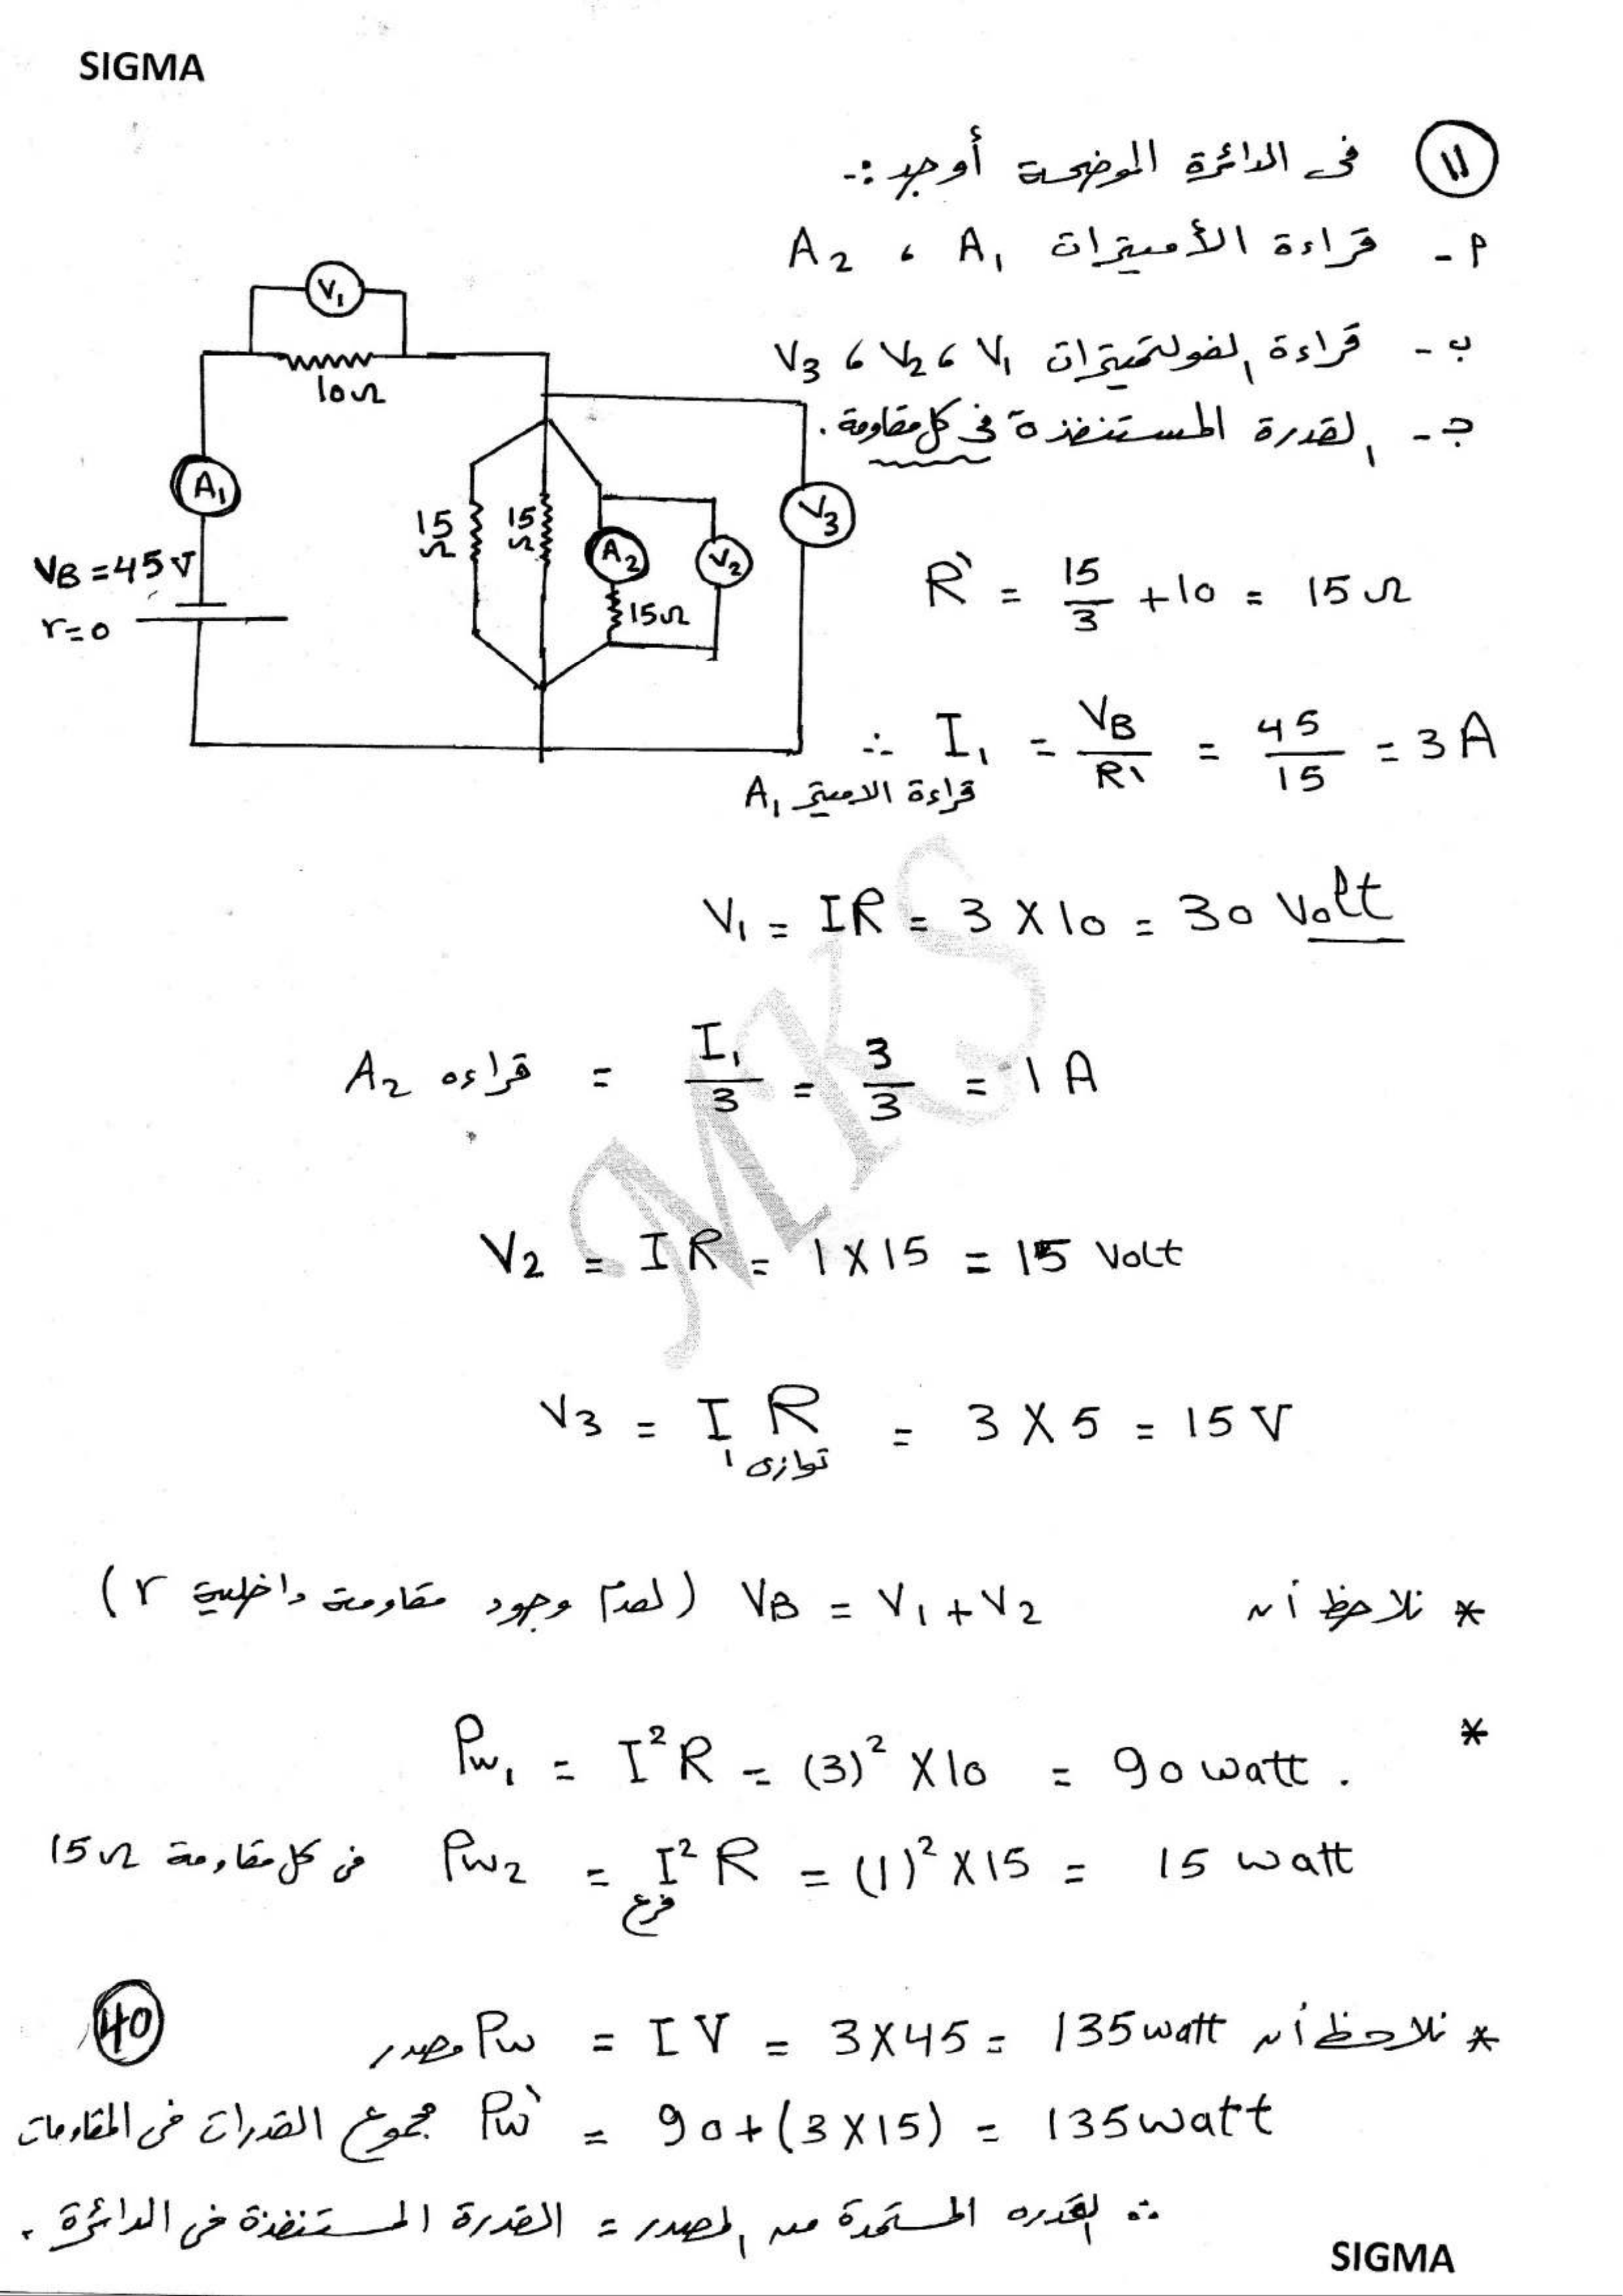 SIGMA
١١ فى الدائرة الموضحة أوجد :-
أ - قراءة الأميترات A1 ، A2
ب - قراءة الفولتميترات V1 ، V2 ، V3
جـ - القدرة المستنفذة فى كل مقاومة .
V1
10Ω
A1
VB = 45 V
r = 0
15 Ω
15 Ω
A2
15Ω
V2
V3
R` = 15/3 + 10 = 15 Ω
∴ I1 = VB/R\ = 45/15 = 3 A
قراءة الاميتر A1
V1 = IR = 3 X 10 = 30 Volt
قراءه A2 = I1/3 = 3/3 = 1 A
V2 = I R = 1 X 15 = 15 Volt
V3 = I1 R توازى = 3 X 5 = 15 V
* نلاحظ أن VB = V1 + V2 (لعدم وجود مقاومة داخلية r)
* Pw1 = I²R = (3)² X 10 = 90 watt .
Pw2 = I² فرع R = (1)² X 15 = 15 watt فى كل مقاومة 15Ω
* نلاحظ أن Pw مصدر = I V = 3X45 = 135 watt
40
Pw` = 90 + (3 X 15) = 135 watt مجموع القدرات فى المقاومات
∴ القدره المستمدة من المصدر = القدرة المستنفذة فى الدائرة .
SIGMA
MKS